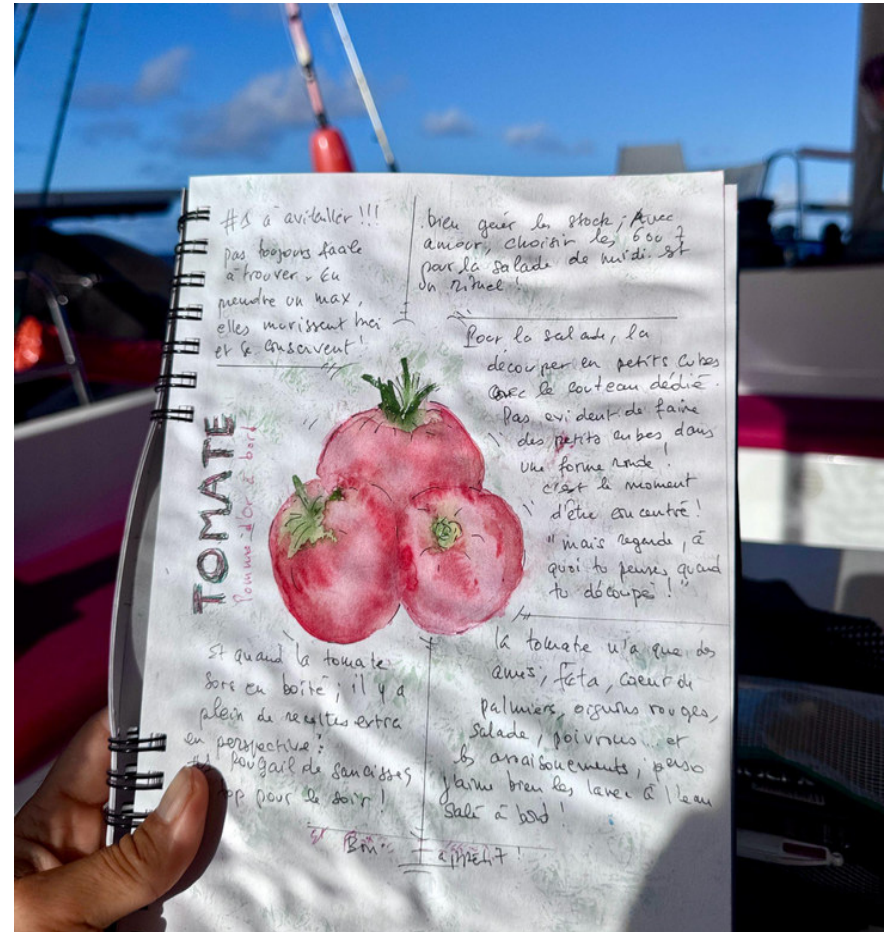 #1 à avitailler !!!
pas toujours facile
à trouver. En
prendre un max,
elles murissent
et se conservent !
bien gérer les stock ; Avec
amour, choisir les 6 ou 7
pour la salade de midi. est
un rituel !
Pour la salade, la
découper en petits cubes
avec le couteau dédié.
Pas evident de faire
des petits cubes dans
une forme ronde !
c'est le moment
d'être concentré !
"mais regarde, à
quoi tu penses quand
tu découpe !"
TOMATE
Pomme d'Or à bord
Et quand la tomate
sors en boîte ; il y a
plein de recettes extra
en perspective :
#1 Rougail de saucisses
top pour le soir !
la tomate n'a que des
amis, feta, coeur de
palmiers, oignons rouges,
salade, poivrons... et
les assaisonements, perso
j'aime bien les laver à l'eau
salé à bord !
Bon appétit !